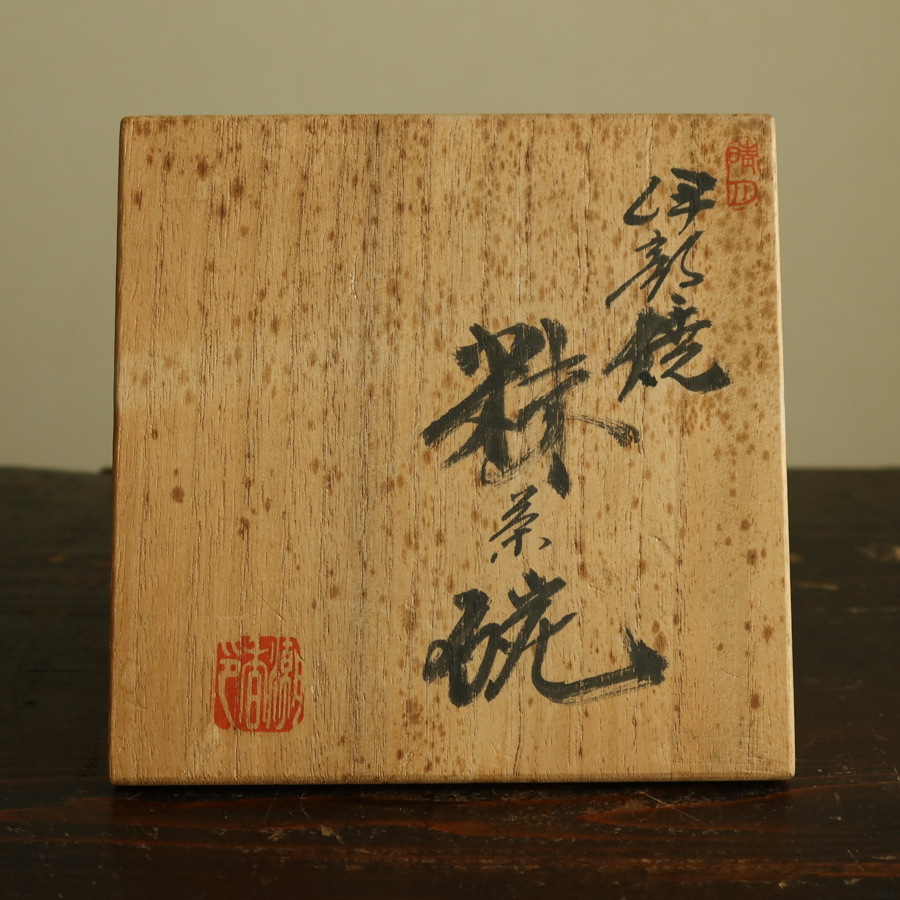 伊部焼
粖茶碗